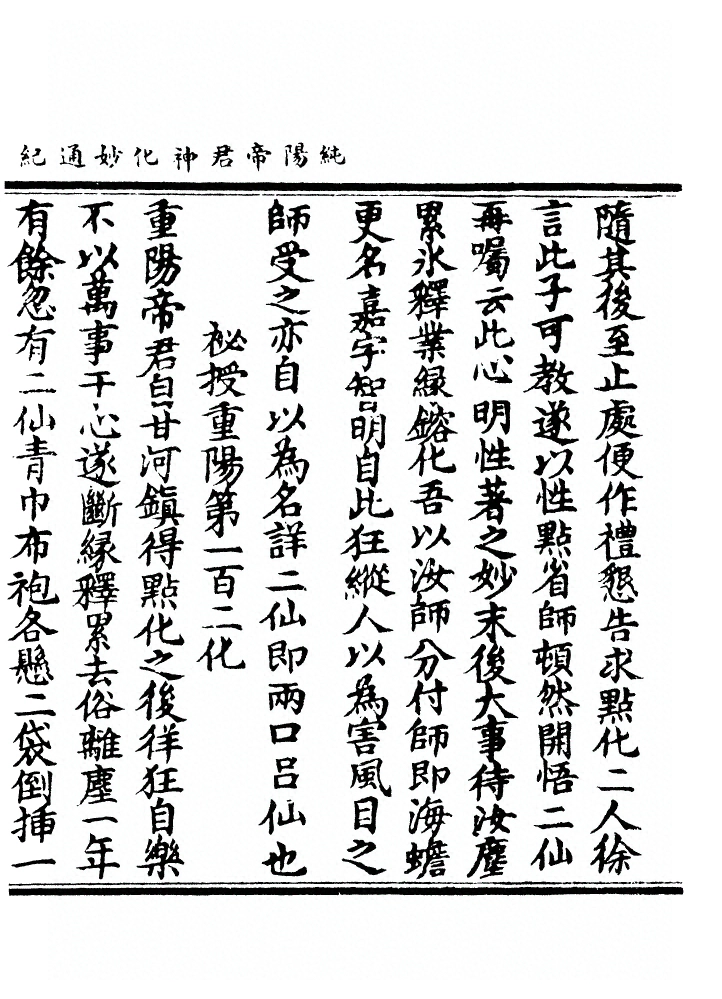 純陽帝君神化妙通紀
隨其後至止處便作禮懇告求點化二人徐
言此子可教遂以性點省師頓然開悟二仙
再囑云此心明性著之妙末後大事待汝塵
累氷釋業緣鎔化吾以汝師分付師即海蟾
更名嘉字智明自此狂縱人以為害風目之
師受之亦自以為名詳二仙即兩口呂仙也
祕授重陽第一百二化
重陽帝君自甘河鎮得點化之後徉狂自樂
不以萬事干心遂斷緣釋累去俗離塵一年
有餘忽有二仙青巾布袍各懸二袋倒揷一